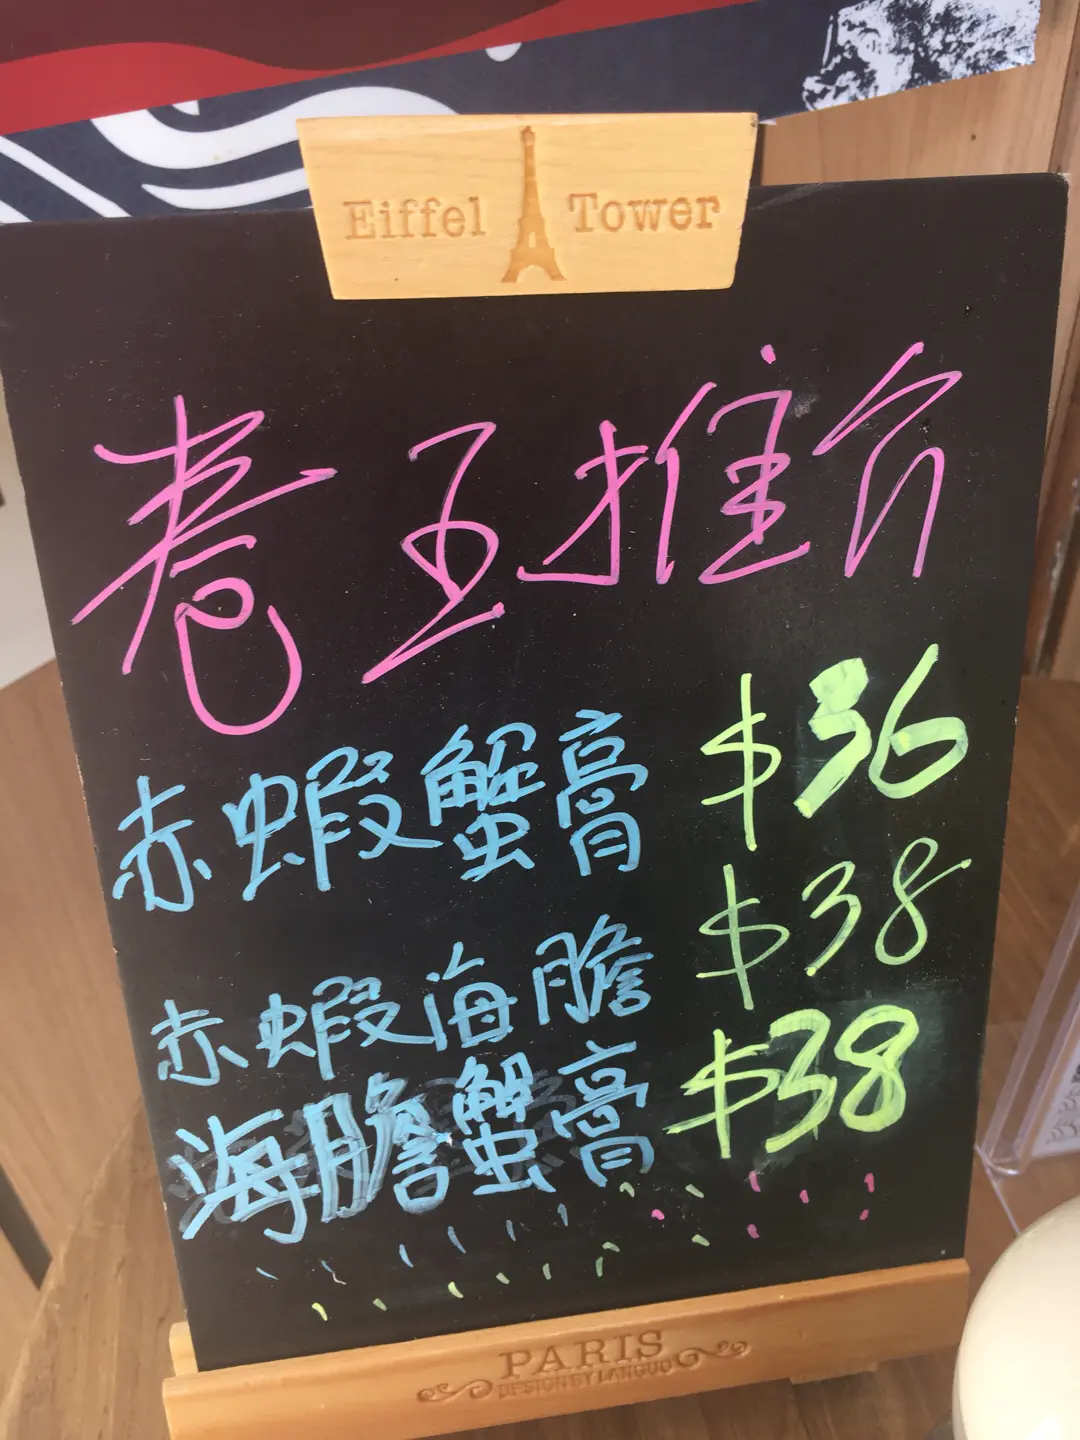 Eiffel Tower
卷王推介
赤蝦蟹膏 $36
赤蝦海膽 $38
海膽蟹膏 $38
PARIS
DESIGN BY LANGUO